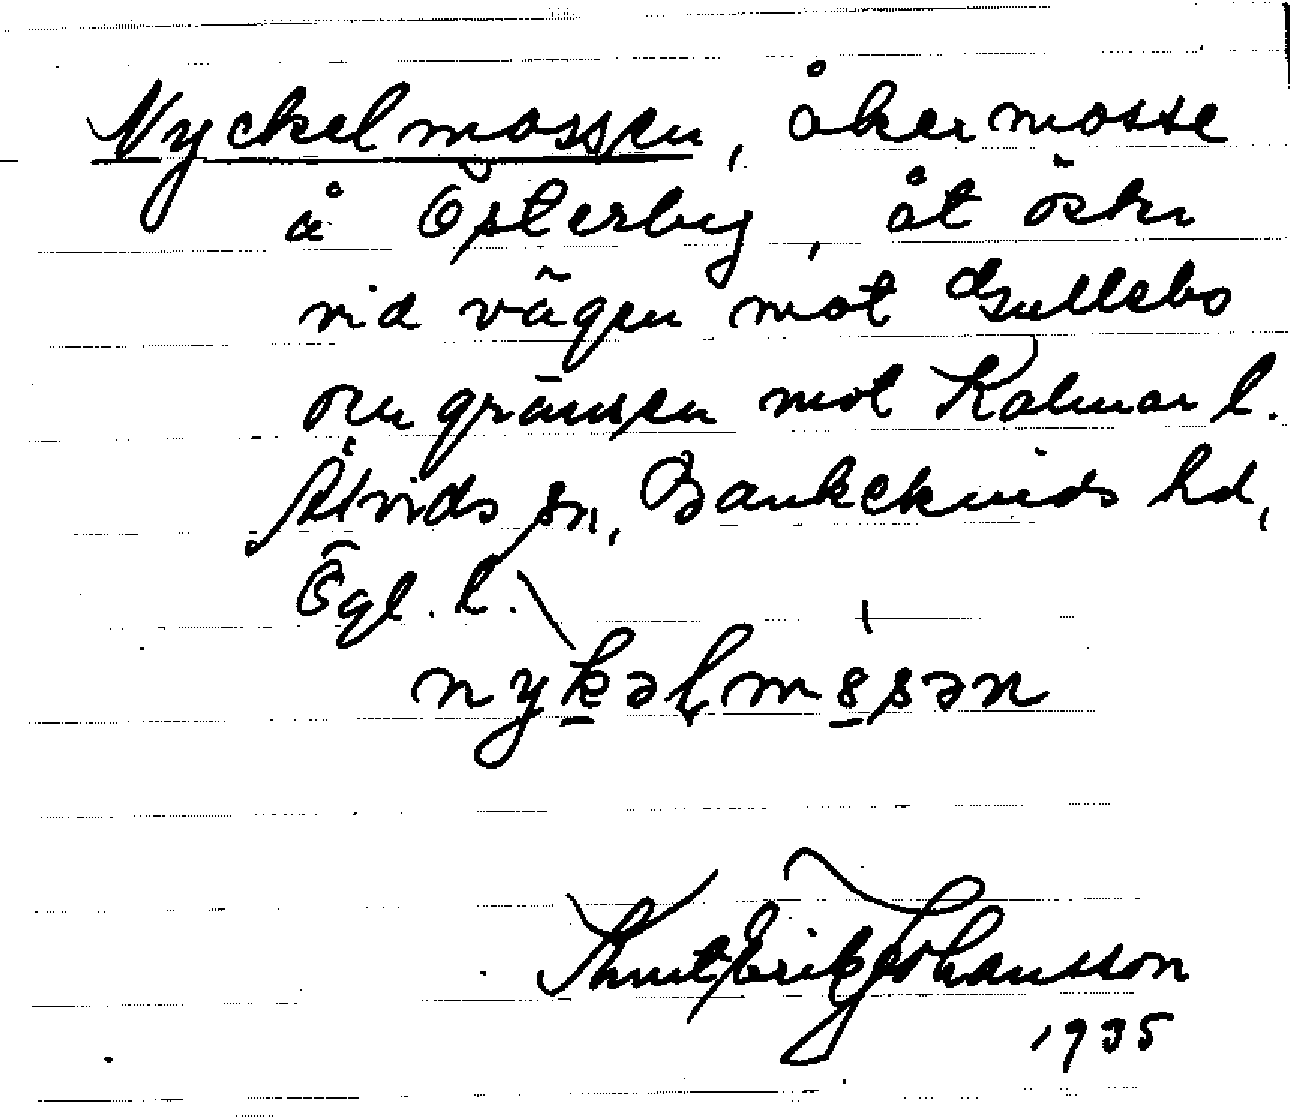 Nyckelmossen, åkermosse
å Österby, åt öster
vid vägen mot Gullebo
om gränsen mot Kalmar l.
Åtvids sn, Bankekinds hd,
Ögl. l.
Knut Erik Johansson
1935